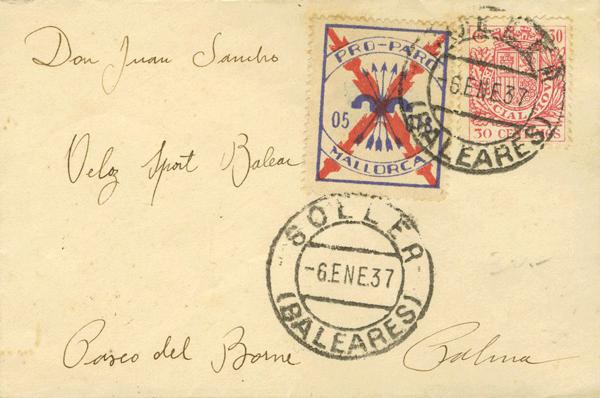 Don Juan Sancho
Veloz Sport Balear
Paseo del Borne
Palma
PRO-PARO
05
MALLORCA
30
ESPECIAL MOVIL
30 CENTIMOS
SOLLER
-6.ENE.37
(BALEARES)
SOLLER
-6.ENE.37
(BALEARES)